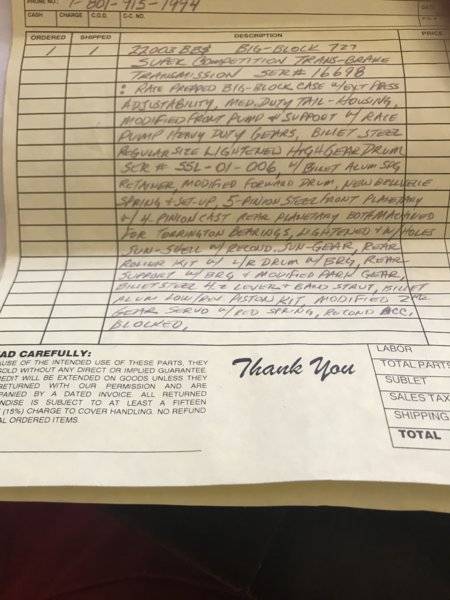 PHONE NO.: 1-801-915-1944
CASH CHARGE C.O.D. C-C. NO.
ORDERED SHIPPED DESCRIPTION PRICE
1 1 22003BBS BIG-BLOCK 727
SUPER COMPETITION TRANS-BRAKE
TRANSMISSION SER# 16698
: RACE PREPPED BIG-BLOCK CASE W/EXT PRESS
ADJUSTABILITY, MED. DUTY TAIL-HOUSING,
MODIFIED FRONT PUMP & SUPPORT W/ RACE
PUMP HEAVY DUTY GEARS, BILLET STEEL
REGULAR SIZE LIGHTENED HIGH GEAR DRUM
SER # SSL-01-006, W/ BILLET ALUM SPG
RETAINER, MODIFIED FORWARD DRUM, NEW BELLEVILLE
SPRING & SET-UP, 5-PINION STEEL FRONT PLANETARY
& 4-PINION CAST REAR PLANETARY BOTH MACHINED
FOR TORRINGTON BEARINGS, LIGHTENED W/ HOLES
SUN-SHELL W/ RECOND. SUN-GEAR, REAR
ROLLER KIT W/ L/R DRUM W/ BRG, REAR
SUPPORT W/ BRG & MODIFIED PARK GEAR,
BILLET STEEL 4.2 LEVER & BAND STRUT, BILLET
ALUM LOW/REV PISTON KIT, MODIFIED 2ND
GEAR SERVO W/ RED SPRING, RECOND ACC.
BLOCKED.
AD CAREFULLY:
AUSE OF THE INTENDED USE OF THESE PARTS, THEY
SOLD WITHOUT ANY DIRECT OR IMPLIED GUARANTEE.
EDIT WILL BE EXTENDED ON GOODS UNLESS THEY
RETURNED WITH OUR PERMISSION AND ARE
PANIED BY A DATED INVOICE. ALL RETURNED
NDISE IS SUBJECT TO AT LEAST A FIFTEEN
(15%) CHARGE TO COVER HANDLING. NO REFUND
AL ORDERED ITEMS.
Thank You
LABOR
TOTAL PARTS
SUBLET
SALES TAX
SHIPPING
TOTAL